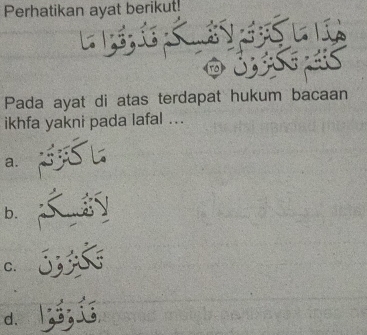 Perhatikan ayat berikut!
هٰذَا مَا كَنَزْتُمْ لِاَنْفُسِكُمْ فَذُوْقُوْا مَا
كُنْتُمْ تَكْنِزُوْنَ ﴿٣٥﴾
Pada ayat di atas terdapat hukum bacaan
ikhfa yakni pada lafal ...
a. مَا كَنَزْتُمْ
b. لِاَنْفُسِكُمْ
c. تَكْنِزُوْنَ
d. فَذُوْقُوْا